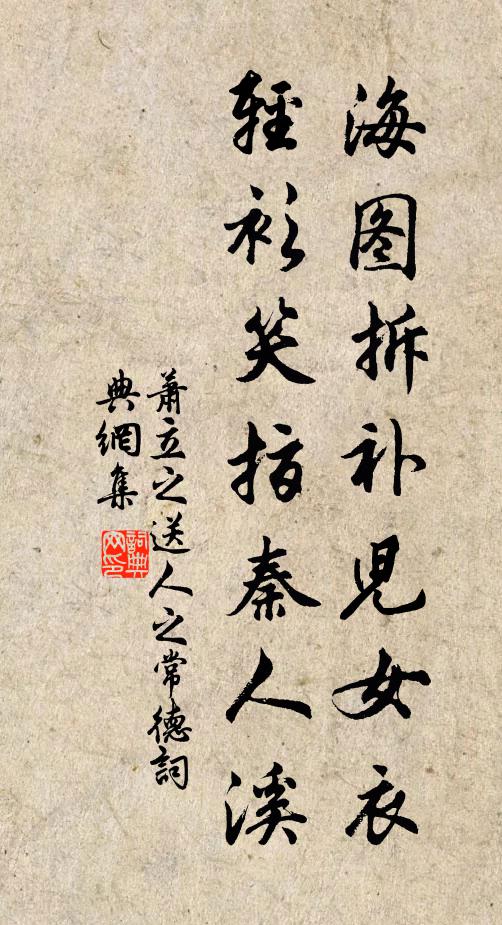 海图拆补儿女衣
轻衫笑指秦人溪
萧立之送人之常德词
典网集
词典网印